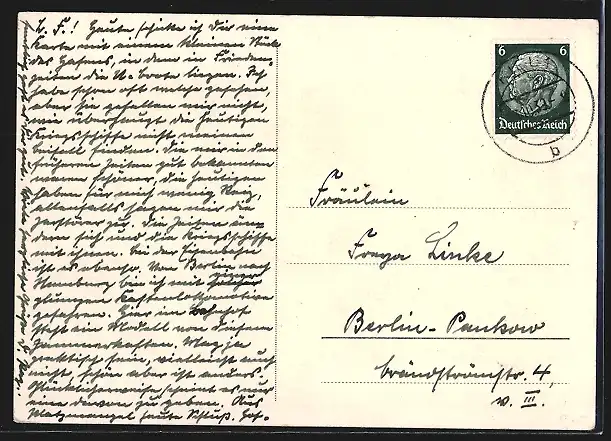 L. F.! Heute schicke ich Dir eine
Karte mit einem kleinen Stück
des Hafens, in dem in Frieden,
zeiten die U-boote liegen. Ich
habe schon oft welche gesehen,
aber sie gefallen mir nicht,
wie überhaupt die heutigen
Kriegsschiffe nicht meinen
Beifall finden. Die mir in den
früheren Zeiten gut bekannten
waren schöner, die heutigen
haben für mich wenig Reiz,
allenfalls sagen mir die
Zerstörer zu. Die Zeiten än-
dern sich und die Kriegsschiffe
mit ihnen. Bei der Eisenbahn
ist es ebenso. Von Berlin nach
Hamburg bin ich mit einer
Kastenlokomotive
gefahren. Hier im Bahnhof
steht ein Modell von diesem
Jammerkasten. Mag ja
praktisch sein, vielleicht auch
nicht, schön aber ist anders.
Glücklicherweise scheint es nur
eine davon zu geben. Aus
Platzmangel heute Schluß.
6 6
Deutsches Reich
b
Fräulein
Freya Linke
Berlin-Pankow
Brändströmstr. 4,
v. III.